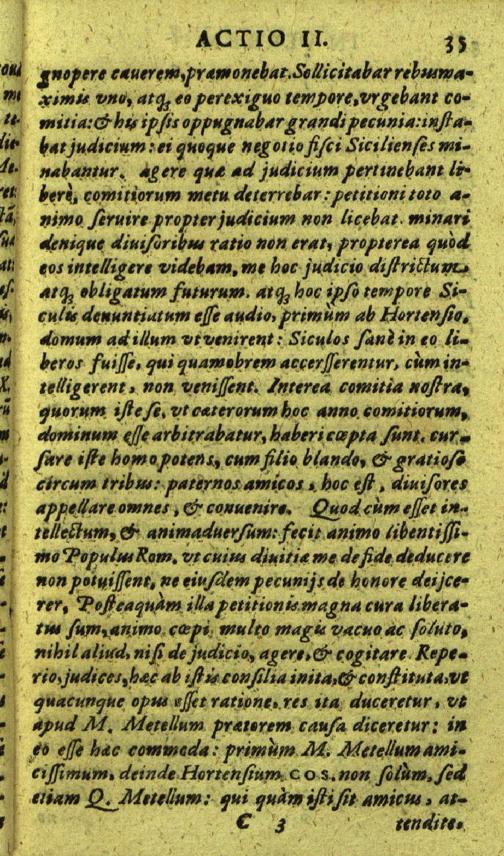 ACTIO II. 35
gnopere cauerem, præmonebat. Sollicitabar rebus ma-
ximis vno, atq; eo perexiguo tempore, vrgebant co-
mitia: & his ipsis oppugnabar grandi pecunia: insta-
bat judicium: ei quoque negotio fisci Sicilienses mi-
nabantur. agere quæ ad judicium pertinebant li-
berè, comitiorum metu deterrebar: petitioni toto a-
nimo seruire propter judicium non licebat. minari
denique diuisoribus ratio non erat, propterea quòd
eos intelligere videbam, me hoc judicio districtum
atq; obligatum futurum. atq; hoc ipso tempore Si-
culis denuntiatum esse audio, primùm ab Hortensio,
domum ad illum vt venirent: Siculos sanè in eo li-
beros fuisse, qui quamobrem accerserentur, cùm in-
telligerent, non venissent. Interea comitia nostra,
quorum iste se, vt cæterorum hoc anno comitiorum,
dominum esse arbitrabatur, haberi cœpta sunt. cur-
sare iste homo potens, cum filio blando, & gratioso
circum tribus: paternos amicos, hoc est, diuisores
appellare omnes, & conuenire. Quod cùm esset in-
tellectum, & animaduersum: fecit animo libentissi-
mo Populus Rom. vt cuius diuitiæ me de fide deducere
non potuissent, ne eiusdem pecunijs de honore deijce-
rer, Posteaquàm illa petitionis magna cura libera-
tus sum, animo cœpi multo magis vacuo ac soluto,
nihil aliud, nisi de judicio, agere, & cogitare Repe-
rio, judices, hæc ab istis consilia inita, & constituta, vt
quacunque opus esset ratione, res ita duceretur, vt
apud M. Metellum prætorem causa diceretur: in
eo esse hæc commoda: primùm M. Metellum ami-
cissimum, deinde Hortensium COS. non solùm, sed
etiam Q. Metellum: qui quàm isti sit amicus, at-
C 3 tendite.